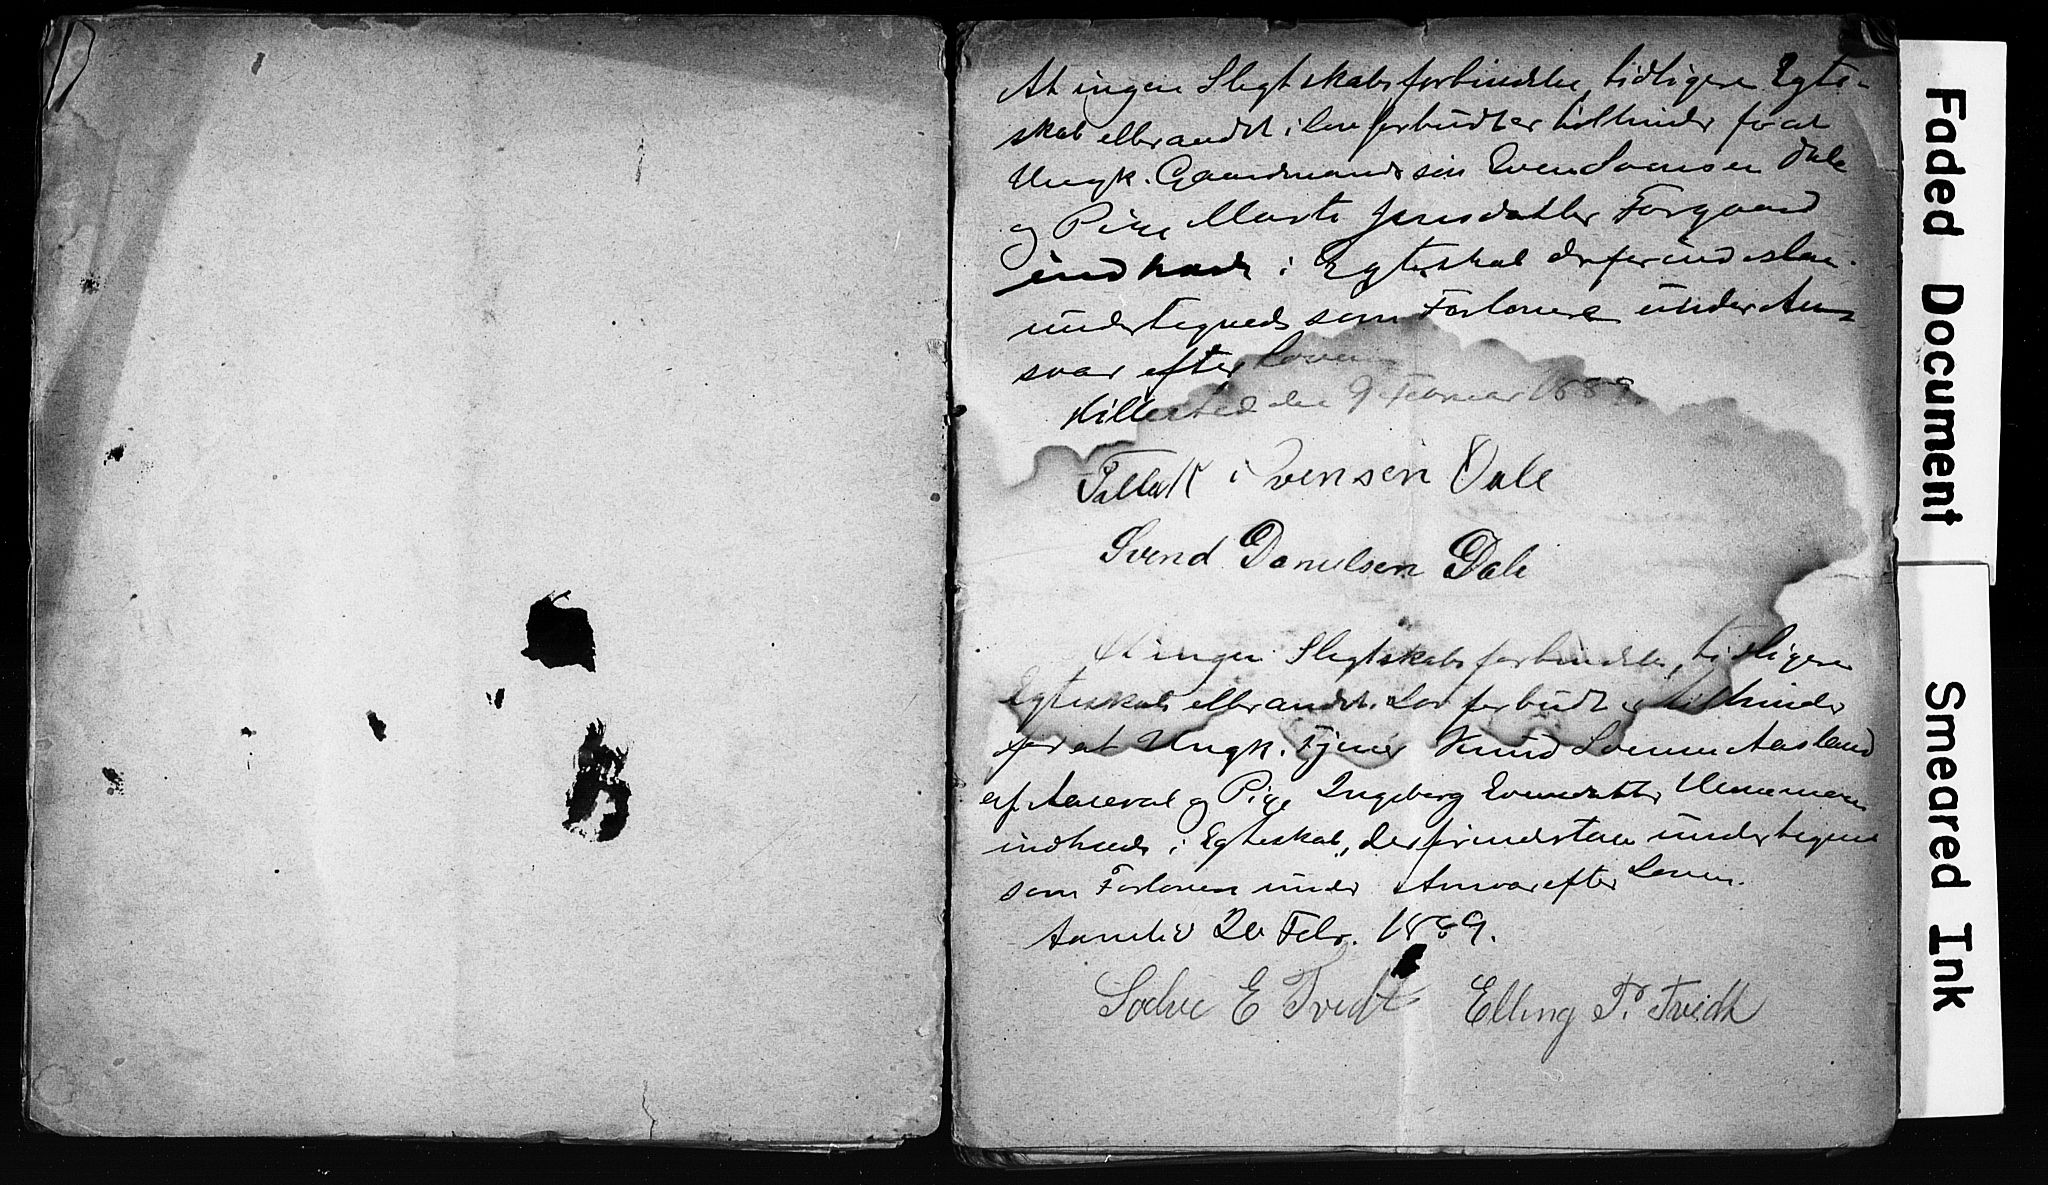 At ingen Slegtskabsforbindelse, tidligere Egte-
skab eller andet i Lov forbudt er til hinder for at
Ungk. Gaardmandssøn Even Svensen Dale
og Pige Marte Jensdatter Forgaard
indtræde i Egteskab derfor indestaa
undertegnede som Forlovere under An-
svar efter Loven
Hillestad den 9 Februar 1889.
Tallak Svensen Dale
Svend Danielsen Dale
At ingen Slegtskabsforbindelse, tidligere
Egteskab eller andet i Lov forbudt er til hinder
for at Ungk. Tjener Knud Aasland
af og Pige Ingeborg Evensdatter
indtræde i Egteskab, derfor indestaa undertegnede
som Forlovere under Ansvar efter Loven.
Aamli 20 Febr. 1889.
E Tvedt Elling T. Tvedt
Faded Document
Smeared Ink